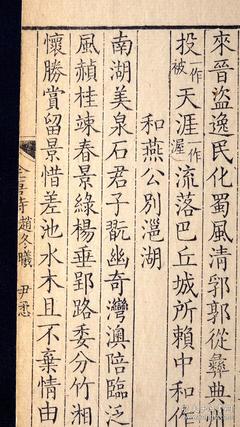 來晉盜逸民化蜀風清郭郭從彝典州
投一作被天涯一作渥流落巴丘城所賴中和作
和燕公別㴩湖
南湖美泉石君子翫幽奇灣澳陪臨泛
風赬桂竦春景綠楊垂郢路委分竹湘
懷勝賞留景惜差池水木且不棄情由
全唐詩 趙冬曦 尹懋